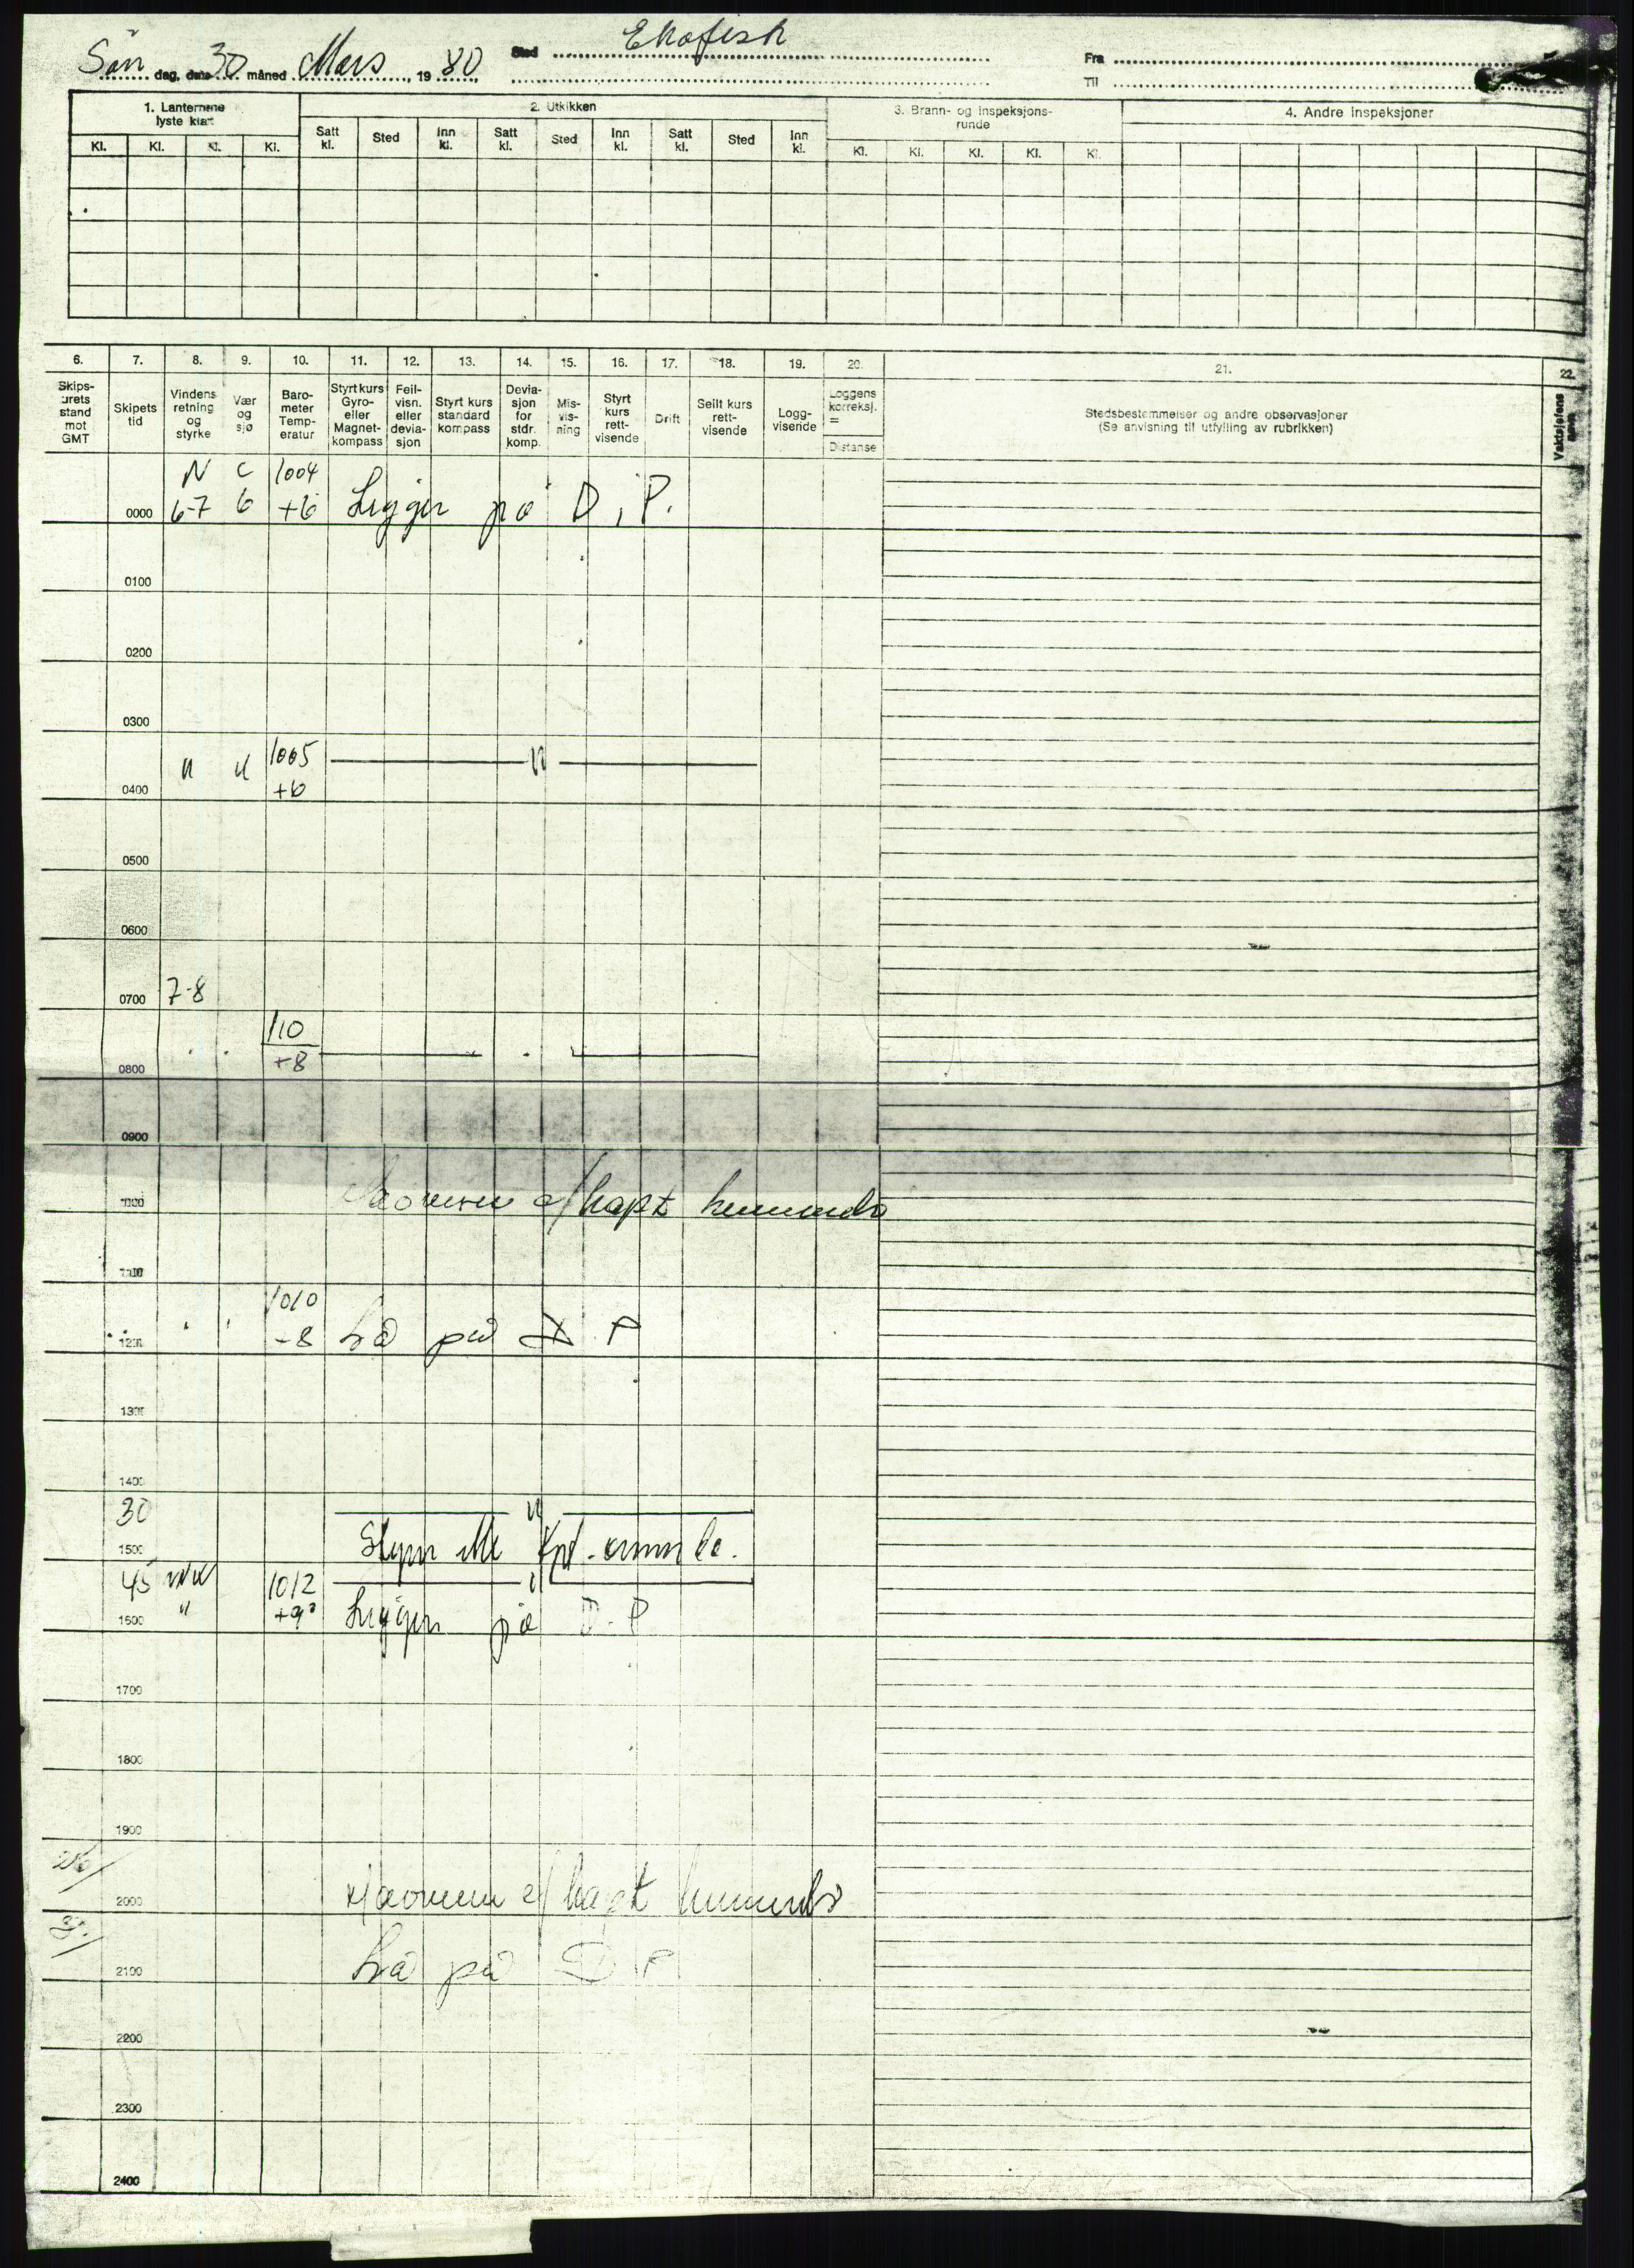 Søn dag, dato 30 måned Mars, 19 80 Sted Ekofisk Fra
Til
1. Lanternene lyste klart
2. Utkikken
3. Brann- og inspeksjons-runde
4. Andre inspeksjoner
Kl. Kl. Kl. Kl. Satt kl. Sted Inn kl. Satt kl. Sted Inn kl. Satt kl. Sted Inn kl. Kl. Kl. Kl. Kl. Kl.
6. 7. 8. 9. 10. 11. 12. 13. 14. 15. 16. 17. 18. 19. 20. 21. 22.
Skips-urets stand mot GMT
Skipets tid
Vindens retning og styrke
Vær og sjø
Baro-meter Temp-eratur
Styrt kurs Gyro- eller Magnet-kompass
Feil-visn. eller devia-sjon
Styrt kurs standard kompass
Devia-sjon for stdr. komp.
Mis-vis-ning
Styrt kurs rett-visende
Drift
Seilt kurs rett-visende
Logg-visende
Loggens korreksj. = Distanse
Stedsbestemmelser og andre observasjoner
(Se anvisning til utfylling av rubrikken)
Vaktsjefens
N C 1004
0000 6-7 6 +6 Ligger på D.P.
0100
0200
0300
" " 1005 "
0400 +6
0500
0600
0700 7-8
110
0800 +8
0900
1000
1100
1010
1200 -8 Lå på D P
1300
1400
30 "
1500
45 1012 "
1600 " +9° Ligger på D.P
1700
1800
1900
2000
2100 Lå på D P
2200
2300
2400